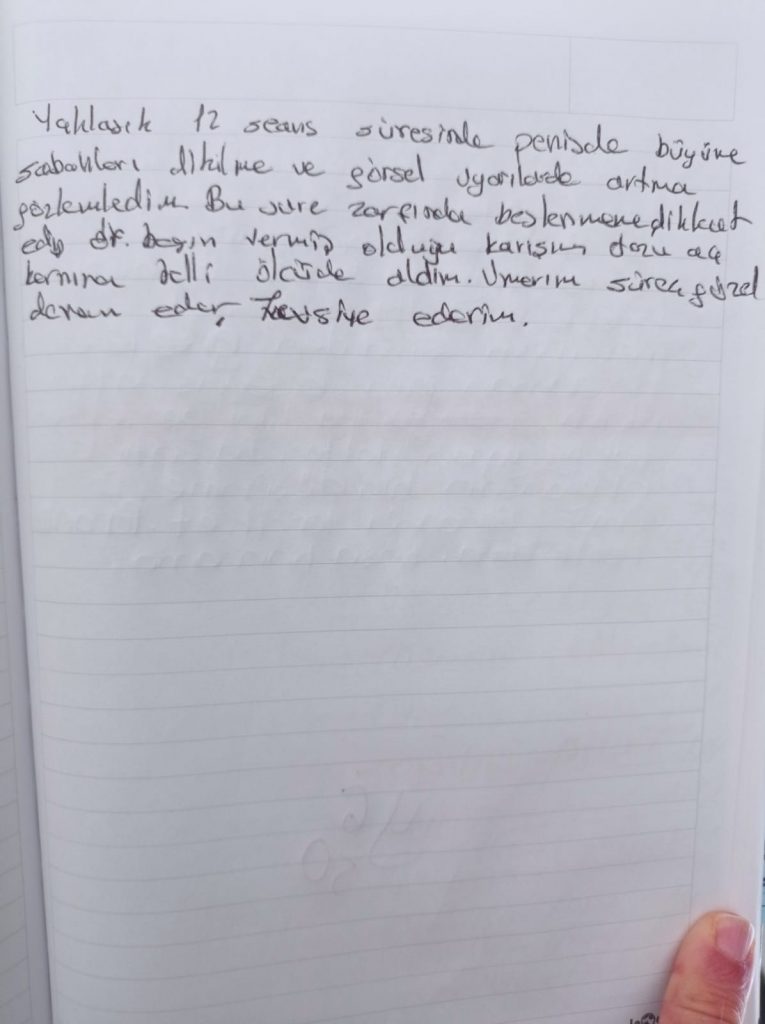 Yaklaşık 12 seans süresinde penisde büyüme
sabahları dikilme ve görsel uyarılarda artma
gözlemledim Bu süre zarfında beslenmeme dikkat
edip dr. beyin vermiş olduğu karışım tozu aç
karnına belli ölçüde aldım. Umarım süreç güzel
devam eder, tavsiye ederim.